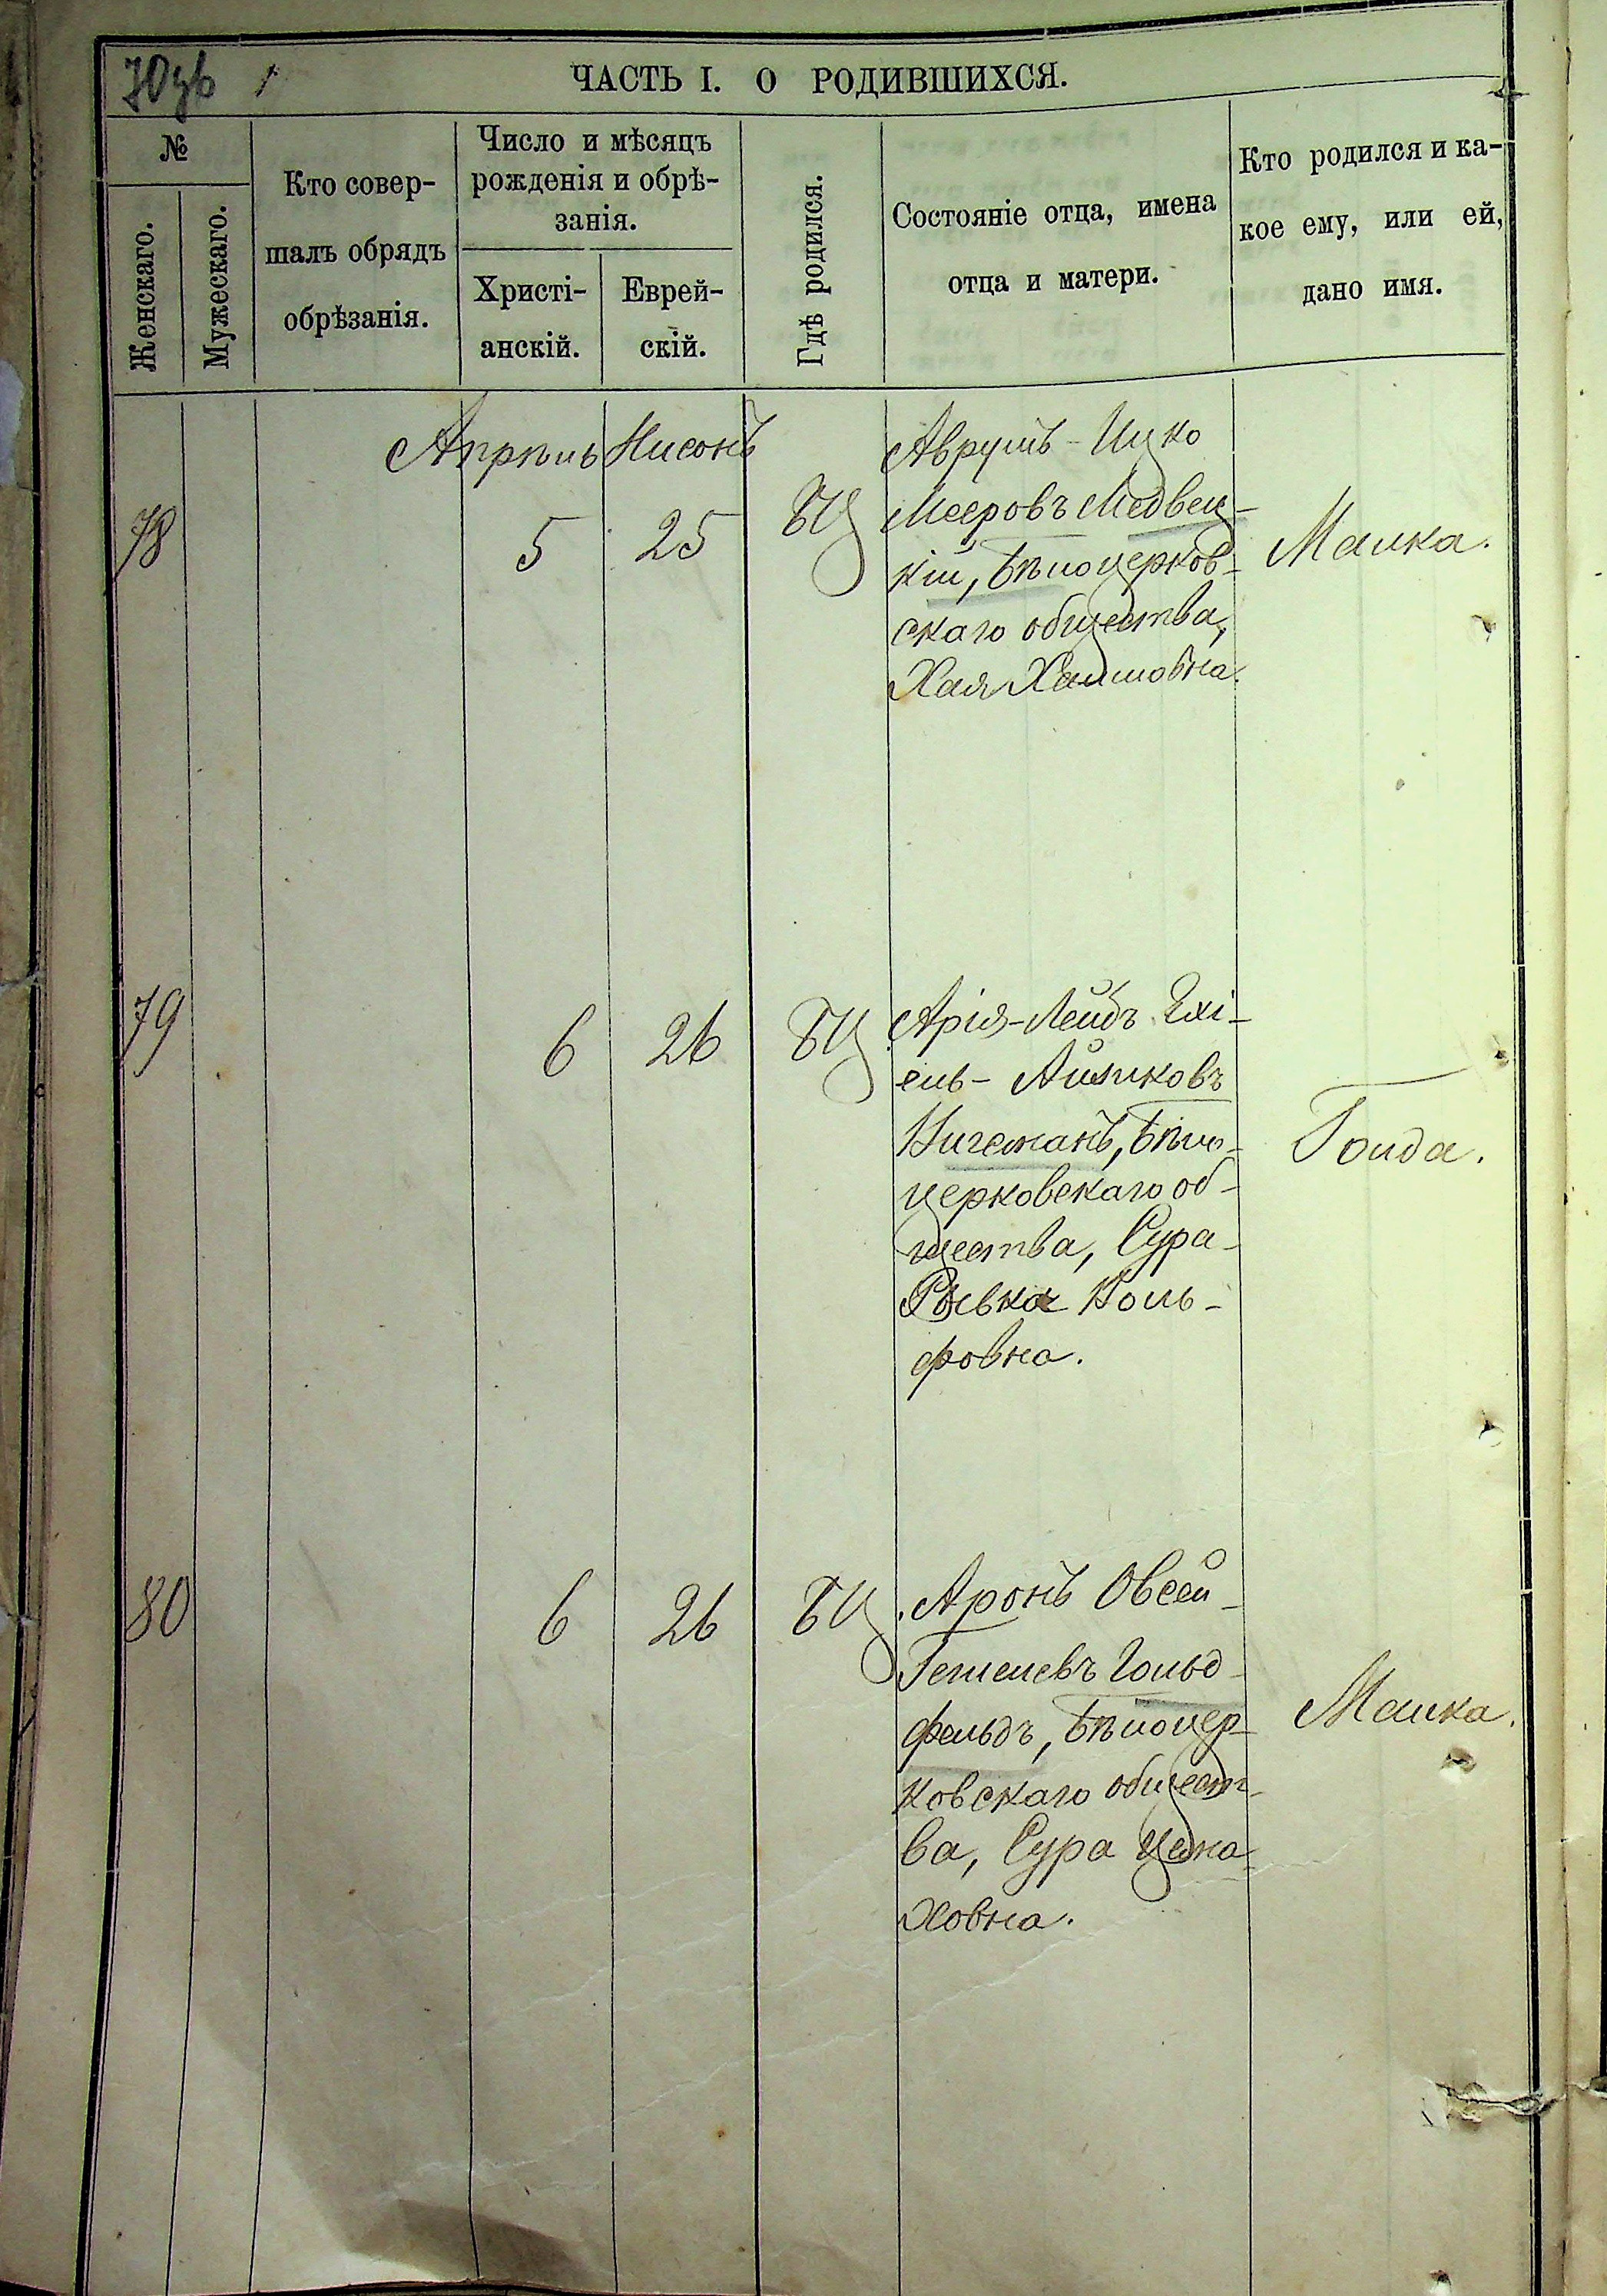 70зв
ЧАСТЬ I. О РОДИВШИХСЯ.
№
Женскаго.
Мужескаго.
Кто совер-
шалъ обрядъ
обрѣзанія.
Число и мѣсяцъ
рожденія и обрѣ-
занія.
Христі-
анскій.
Еврей-
скій.
Гдѣ родился.
Состояніе отца, имена
отца и матери.
Кто родился и ка-
кое ему, или ей,
дано имя.
Апрѣль Нисонъ
78
5
25
БЦ
Аврумъ-Ицко
Мееровъ Медвец-
кій, бѣлоцерков-
скаго общества,
Хая Хаимовна.
Малка.
79
6
26
БЦ
Арія-Лейбъ Ехі-
ель-Айзиковъ
бѣло-
церковскаго об-
щества, Сура-
Рывка Воль-
фовна.
Голда.
80
6
26
БЦ
Аронъ Овсей-
Гешелевъ Гольд-
фельдъ, бѣлоцер-
ковскаго общест-
ва, Сура Цема-
ховна.
Малка.